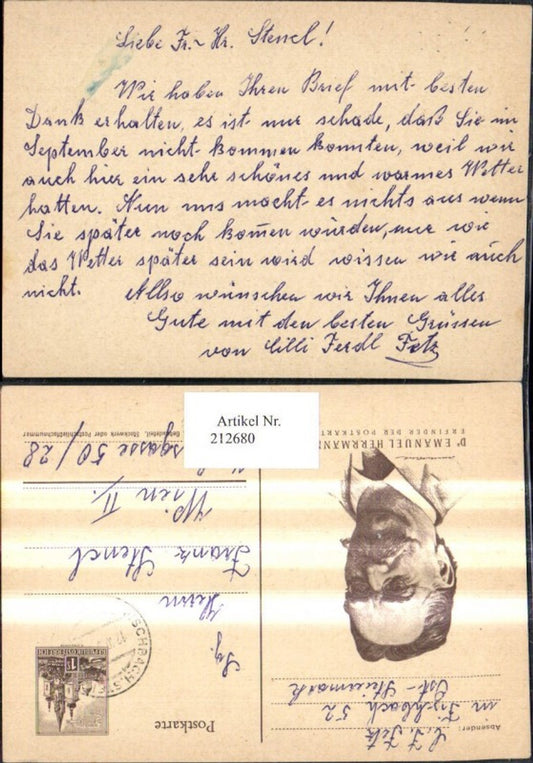 Liebe Fr. - Hr. Stencl!
Wir haben Ihren Brief mit besten
Dank erhalten, es ist nur schade, daß Sie im
September nicht kommen konnten, weil wir
auch hier ein sehr schönes und warmes Wetter
hatten. Nun uns macht es nichts aus wenn
Sie später noch kom̄en würden, nur wie
das Wetter später sein wird wissen wir auch
nicht. Allso wünschen wir Ihnen alles
Gute mit den besten Grüssen
von Cilli Ferdl Fetz
Artikel Nr.
212680
Absender:
C. F. Fetz
in Fischbach 52
Ost-Steiermark
Dr EMANUEL HERRMANN
ERFINDER DER POSTKARTE
Postkarte
REPUBLIK ÖSTERREICH
Sg.
Herrn
Franz Stencl
Wien II.
gasse 50/28
Gebäudeteil, Stockwerk oder Postschließfachnummer